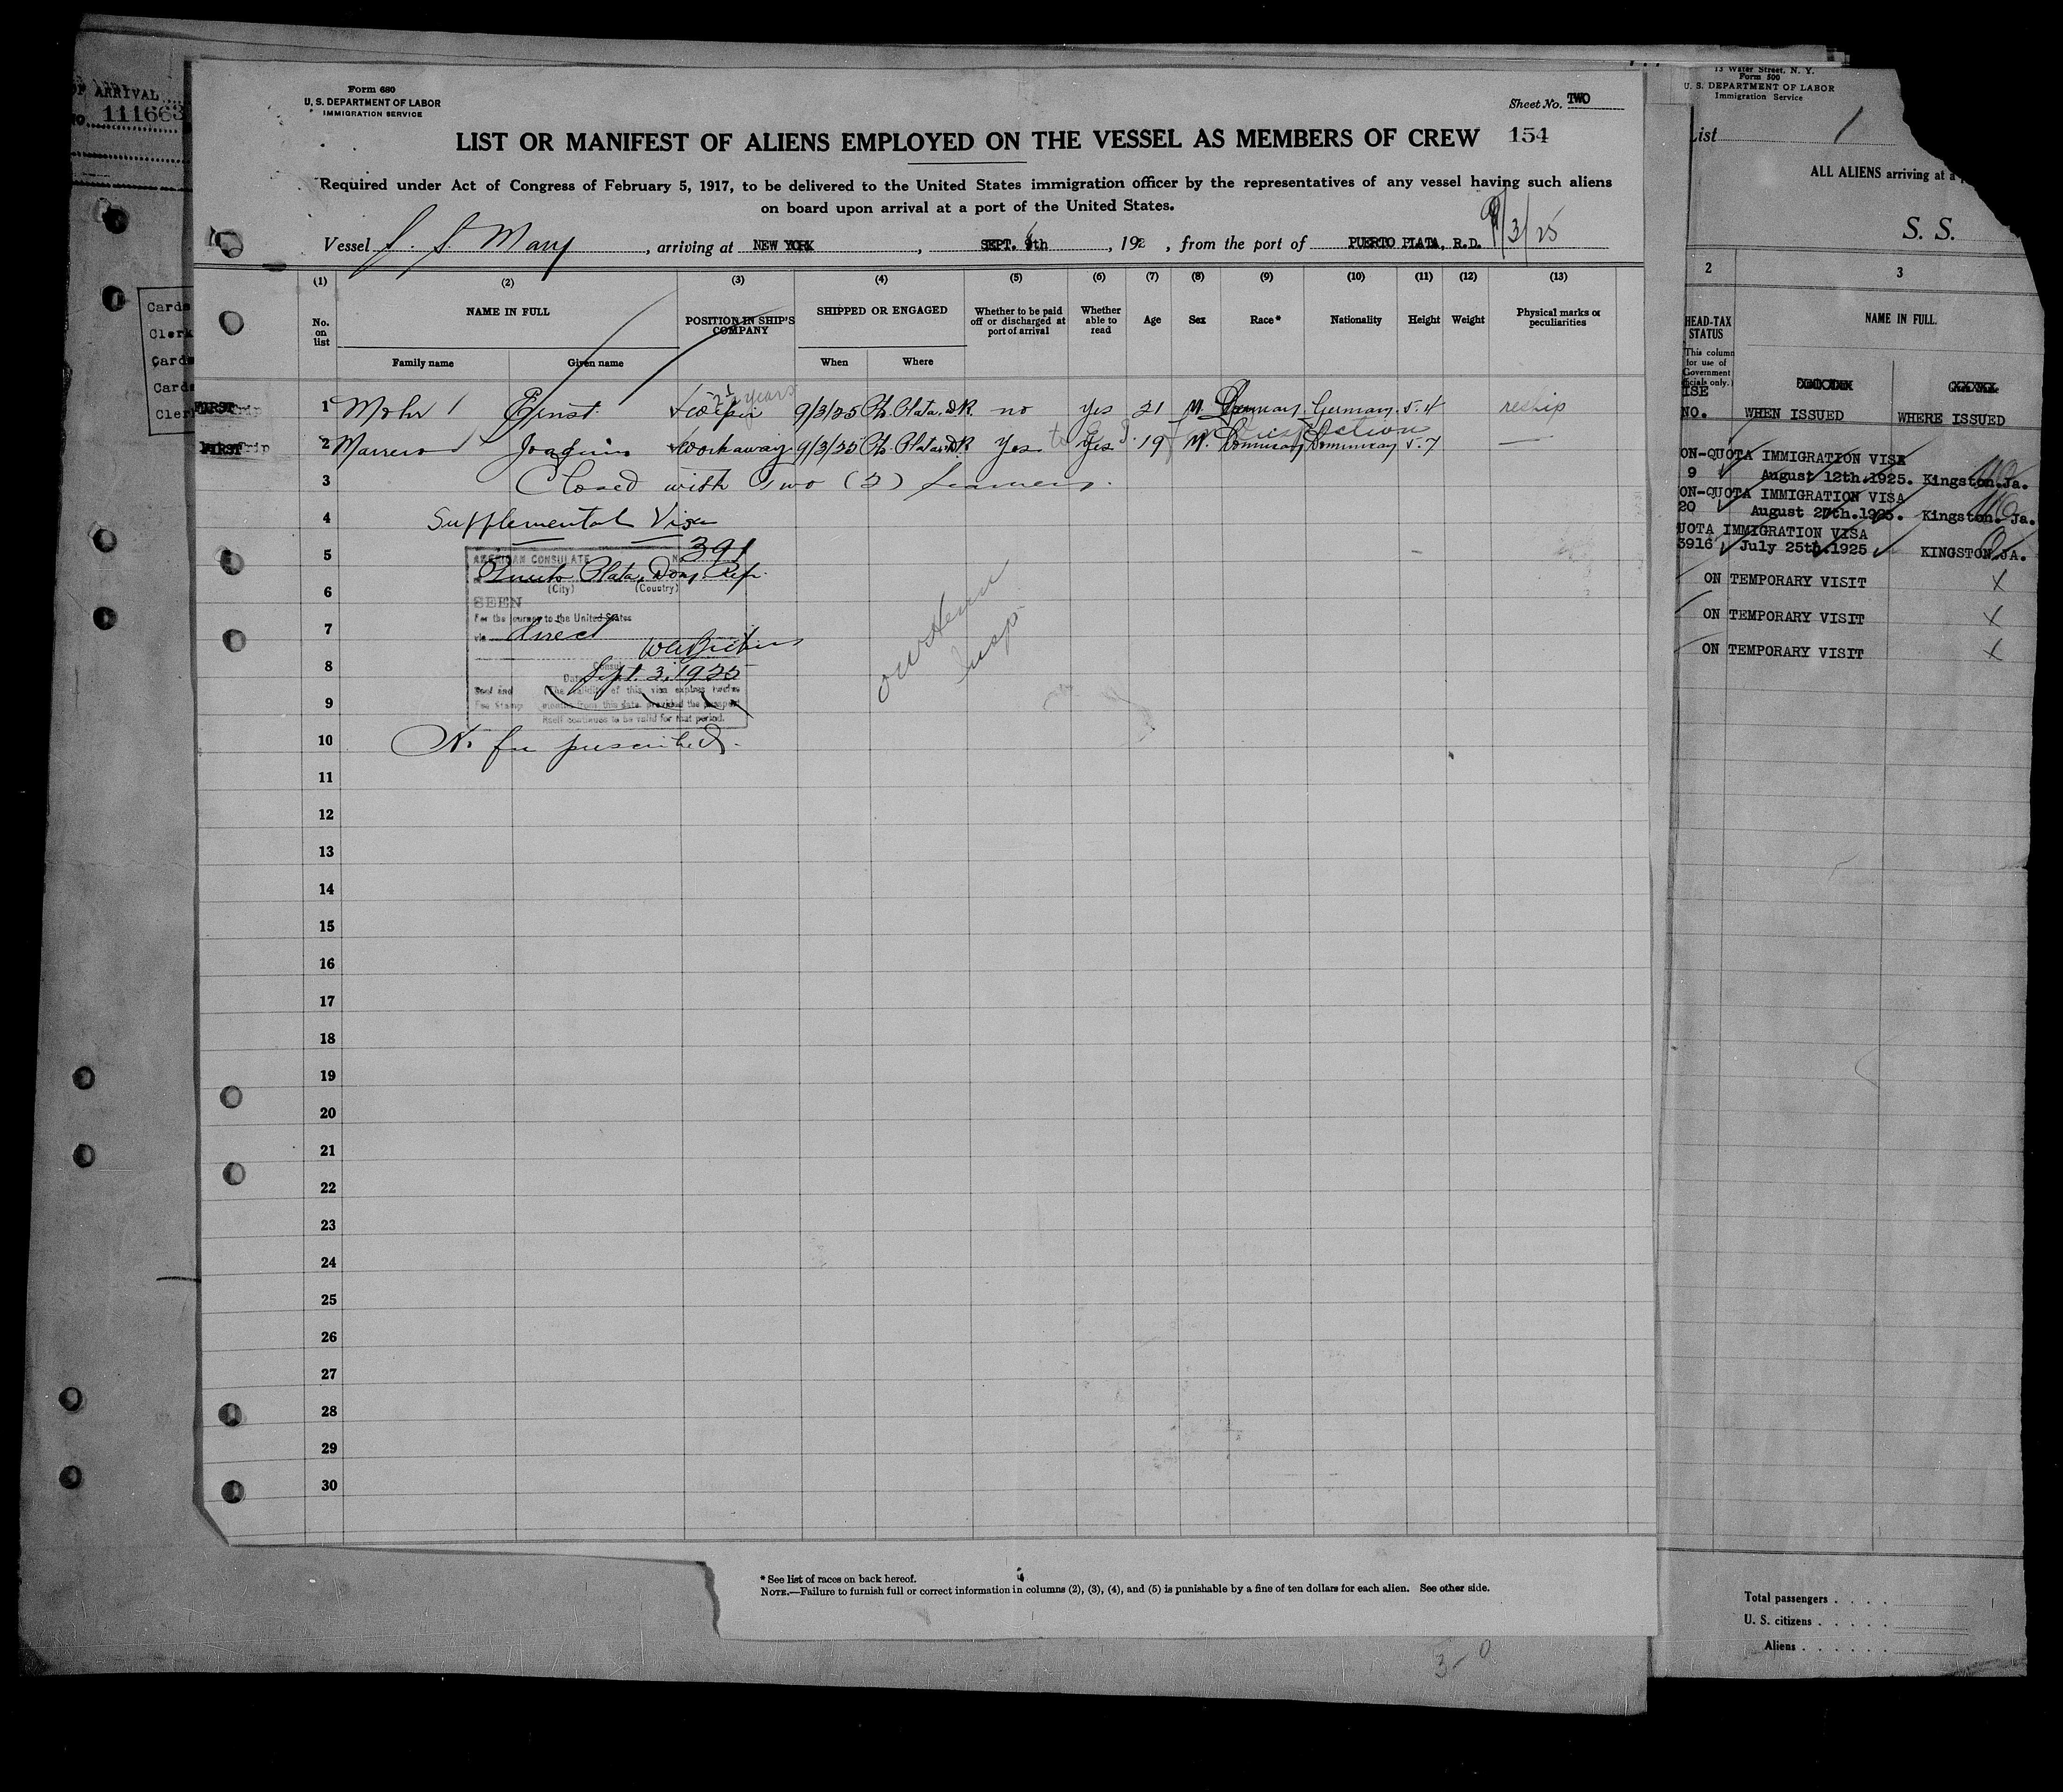 OF ARRIVAL
NO. 111663
Cards
Clerk
Cards
Cards
Clerk
Form 680
U. S. DEPARTMENT OF LABOR
IMMIGRATION SERVICE
Sheet No. TWO
LIST OR MANIFEST OF ALIENS EMPLOYED ON THE VESSEL AS MEMBERS OF CREW 154
Required under Act of Congress of February 5, 1917, to be delivered to the United States immigration officer by the representatives of any vessel having such aliens
on board upon arrival at a port of the United States.
Vessel S. S. Mary, arriving at NEW YORK, SEPT. 9th, 192 , from the port of PUERTO PLATA, R.D. 9/3/25
(1) (2) (3) (4) (5) (6) (7) (8) (9) (10) (11) (12) (13)
No. on list NAME IN FULL POSITION IN SHIP'S COMPANY SHIPPED OR ENGAGED Whether to be paid off or discharged at port of arrival Whether able to read Age Sex Race* Nationality Height Weight Physical marks or peculiarities
Family name Given name When Where
FIRST Trip 1 Mohr Ernst years 9/3/25 Pto. Plata, D.R. no yes 21 M. German German 5.4 reship
FIRST Trip 2 Marrero Joaquin Workaway 9/3/25 Pto. Plata, D.R. Yes Yes 19 M. Dominican Dominican 5.7 —
3 Closed with Two (2) seamen.
4 Supplemental Visa
5 AMERICAN CONSULATE No. 391
Puerto Plata, Dom. Rep.
6 (City) (Country)
SEEN
For the journey to the United States
7 via direct
8 Consul
Date Sept. 3, 1925
Seal and Fee Stamp (The validity of this visa expires twelve
9 months from this date provided the passport
itself continues to be valid for that period.
10 No fee prescribed.
Insp
11
12
13
14
15
16
17
18
19
20
21
22
23
24
25
26
27
28
29
30
* See list of races on back hereof.
NOTE.—Failure to furnish full or correct information in columns (2), (3), (4), and (5) is punishable by a fine of ten dollars for each alien. See other side.
3-0
13 Water Street, N. Y.
Form 500
U. S. DEPARTMENT OF LABOR
Immigration Service
List 1
ALL ALIENS arriving at a
S. S.
2 3
HEAD-TAX STATUS
NAME IN FULL
This column for use of Government officials only.)
NO. WHEN ISSUED WHERE ISSUED
ON-QUOTA IMMIGRATION VISA
9 August 12th.1925. Kingston.Ja.
ON-QUOTA IMMIGRATION VISA
20 August 27th.1925. Kingston. Ja.
UOTA IMMIGRATION VISA
3916 July 25th.1925 KINGSTON.JA.
ON TEMPORARY VISIT X
ON TEMPORARY VISIT X
ON TEMPORARY VISIT X
Total passengers . . . .
U. S. citizens . . . . .
Aliens . . . . . .